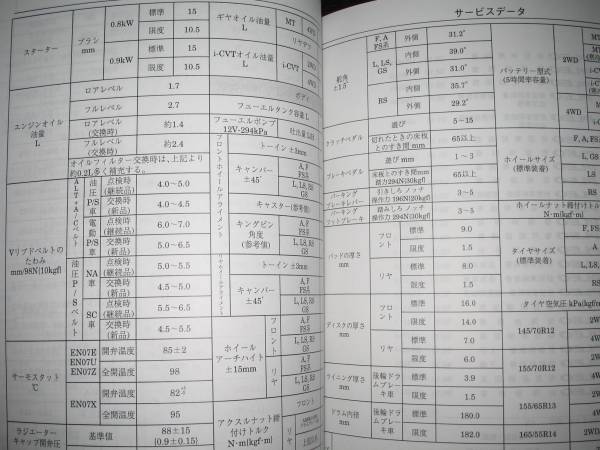 サービスデータ
スターター
ブラシ
mm
0.8kW
標準
15
限度
10.5
0.9kW
標準
15
限度
10.5
エンジンオイル
油量
L
ロアレベル
1.7
フルレベル
2.7
ロアレベル
(交換時)
約1.4
フルレベル
(交換時)
約2.4
オイルフィルター交換時は、上記より
約0.2L多く補充する。
Vリブドベルトの
たわみ
mm/98N{10kgf}
ALT+A/Cベルト
油圧P/S車
点検時
(継続品)
4.0〜5.0
交換時
(新品)
4.0〜4.5
電動P/S車
点検時
(継続品)
6.0〜7.0
交換時
(新品)
5.0〜6.5
油圧P/Sベルト
NA車
点検時
(継続品)
5.0〜5.5
交換時
(新品)
4.5〜5.0
SC車
点検時
(継続品)
5.5〜6.5
交換時
(新品)
4.5〜5.5
サーモスタット
℃
EN07E
EN07U
EN07Z
開弁温度
85±2
全開温度
98
EN07X
開弁温度
82
全開温度
95
ラジエーター
キャップ開弁圧
基準値
88±15
{0.9±0.15}
ギヤオイル油量
L
MT
リヤデフ
i-CVTオイル油量
L
i-CVT
ボディ
フューエルタンク容量 L
フューエルポンプ
12V-294kPa
吐出量
フロントホイールアライメント
トーイン ±3mm
キャンバー
±45′
キャスター(参考値)
キングピン
角度
(参考値)
A, F
FS系
L, LS, RS
GS
トーイン ±3mm
キャンバー
±45′
A, F
FS系
L, LS, RS
GS
ホイール
アーチハイト
±15mm
フロント
A, F
FS系
L, LS, RS
GS
リヤ
A, F
FS系
L, LS, RS
GS
アクスルナット締
付けトルク
N・m{kgf・m}
フロント
リヤ
舵角
±1.5°
F, A
FS系
外側
31.2°
L, LS,
GS
内側
39.0°
外側
31.0°
RS
内側
35.7°
外側
29.2°
クラッチペダル
遊び
5〜15
切れたときの床板
とのすき間 mm
65以上
ブレーキペダル
遊び mm
1〜3
床板とのすき間mm
踏力294N{30kgf}
65以上
パーキング
ブレーキレバー
引きしろ ノッチ
操作力 196N{20kgf}
3〜5
パーキング
フットブレーキ
踏みしろ ノッチ
操作力 294N{30kgf}
3〜5
パッドの厚さ
mm
フロント
標準
9.0
限度
1.5
リヤ
標準
8.0
限度
1.5
ディスクの厚さ
mm
フロント
標準
16.0
限度
14.0
リヤ
標準
7.0
限度
6.0
ライニング厚さ
mm
後輪ドラ
ムブレー
キ車
標準
3.9
限度
1.5
ドラム内径
mm
後輪ドラ
ムブレー
キ車
標準
180.0
限度
182.0
バッテリー型式
(5時間率容量)
2WD
MT
4WD
MT
ホイールサイズ
(標準装着)
F, A, FS
L, GS
LS
RS
ホイールナット締付け
N・m{kgf・m}
タイヤサイズ
(標準装着)
L, GS
LS
RS
タイヤ空気圧 kPa{kgf/c
145/70R12
155/70R12
155/65R13
165/55R14